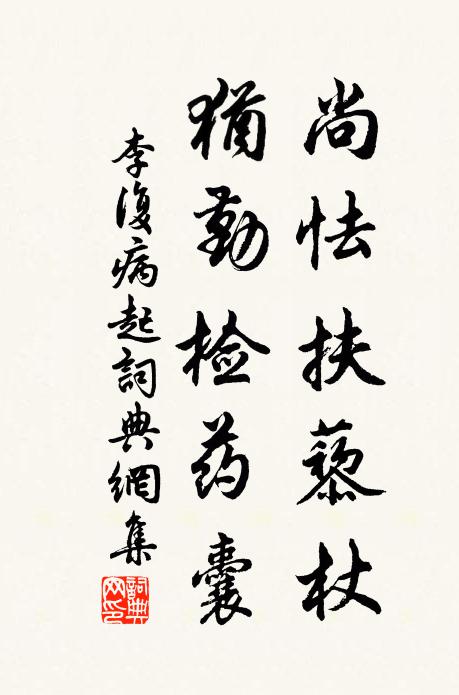 尚怯扶藜杖
犹勤检药囊
李復病起詞典網集
詞典网印